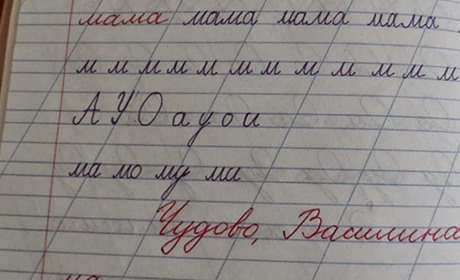 мама мама мама мама
м м м м м м м м м м м м
А У О а у о и
ма мо му ми
Чудово, Василина